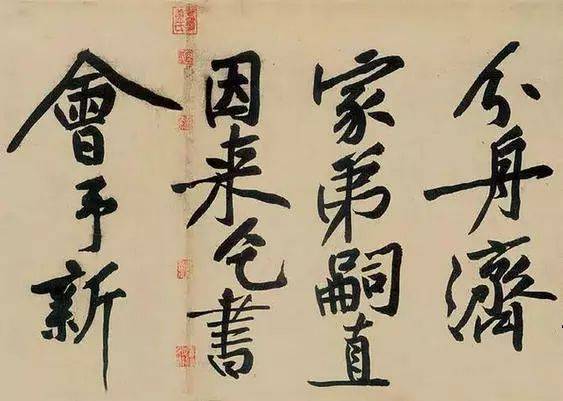 分舟濟
家弟嗣直
因来乞書
會予新